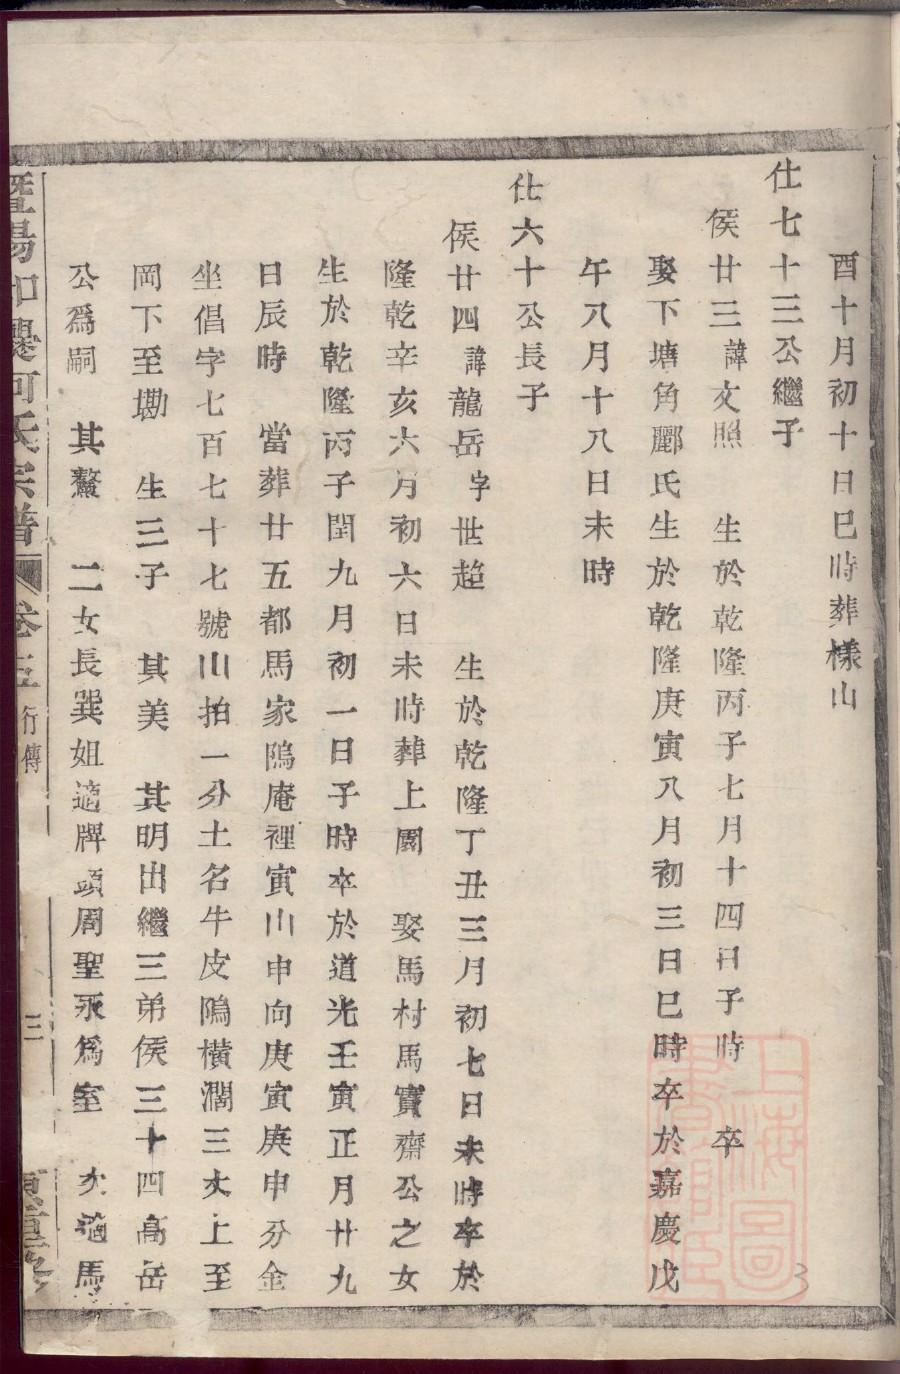 酉十月初十日巳時葬樣山
仕七十三公繼子
侯廿三諱文照 生於乾隆丙子七月十四日子時 卒
娶下塘角酈氏生於乾隆庚寅八月初三日巳時卒於嘉慶戊
午八月十八日未時
仕六十公長子
侯廿四諱龍岳字世超 生於乾隆丁丑三月初七日未時卒於
隆乾辛亥六月初六日未時葬上園 娶馬村馬寶齋公之女
生於乾隆丙子閏九月初一日子時卒於道光壬寅正月廿九
日辰時 當葬廿五都馬家隖庵裡寅山申向庚寅庚申分金
坐倡字七百七十七號山拍一分土名牛皮隖橫濶三丈上至
岡下至墈 生三子 其美 其明出繼三弟侯三十四高岳
公爲嗣 其鰲 二女長巽姐適牌頭周聖永爲室 次適馬
暨陽 何氏宗譜 卷三 行傳
三
上海圖書館藏
3